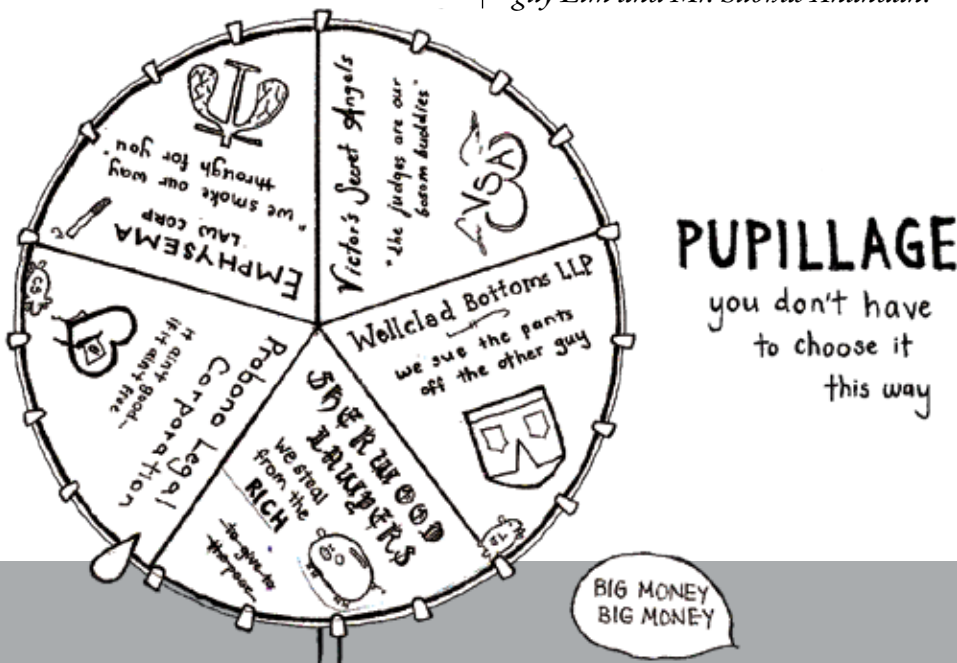 guy Lim and Mr. Subhas Anandan.
Victor's Secret Angels
"the judges are our
bosom buddies"
VSA
Wellclad Bottoms LLP
we sue the pants
off the other guy
SHERWOOD
LAWYERS
we steal
from the
RICH
to give to
the poor
Probono Legal
Corporation
it ain't good~
if it ain't free
EMPHYSEMA
LAW CORP
"we smoke our way
through for you"
PUPILLAGE
you don't have
to choose it
this way
BIG MONEY
BIG MONEY